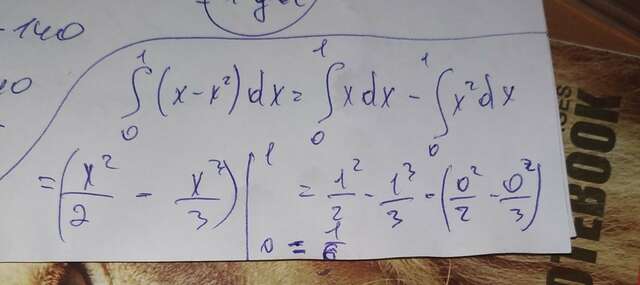 -140
∫₀¹ (x-x²)dx = ∫₀¹ xdx - ∫₀¹ x²dx
= (x²/2 - x³/3) |₀¹ = 1²/2 - 1³/3 - (0²/2 - 0³/3)
= 1/6
NOTEBOOK